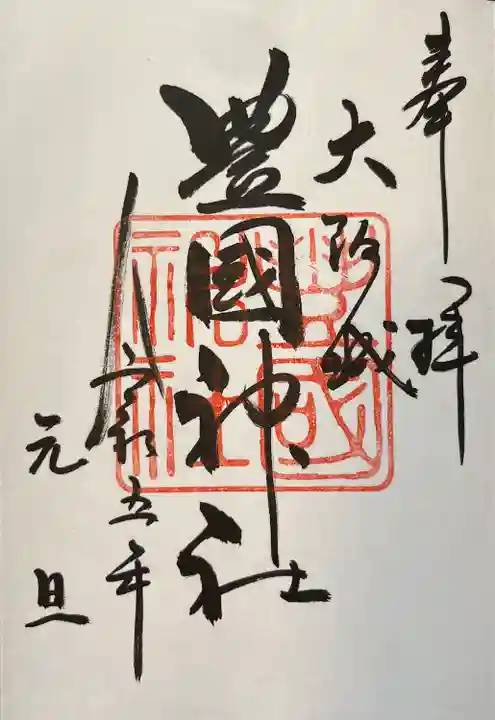 奉拝
大阪城
豊國神社
令和五年
元旦
豊國神社